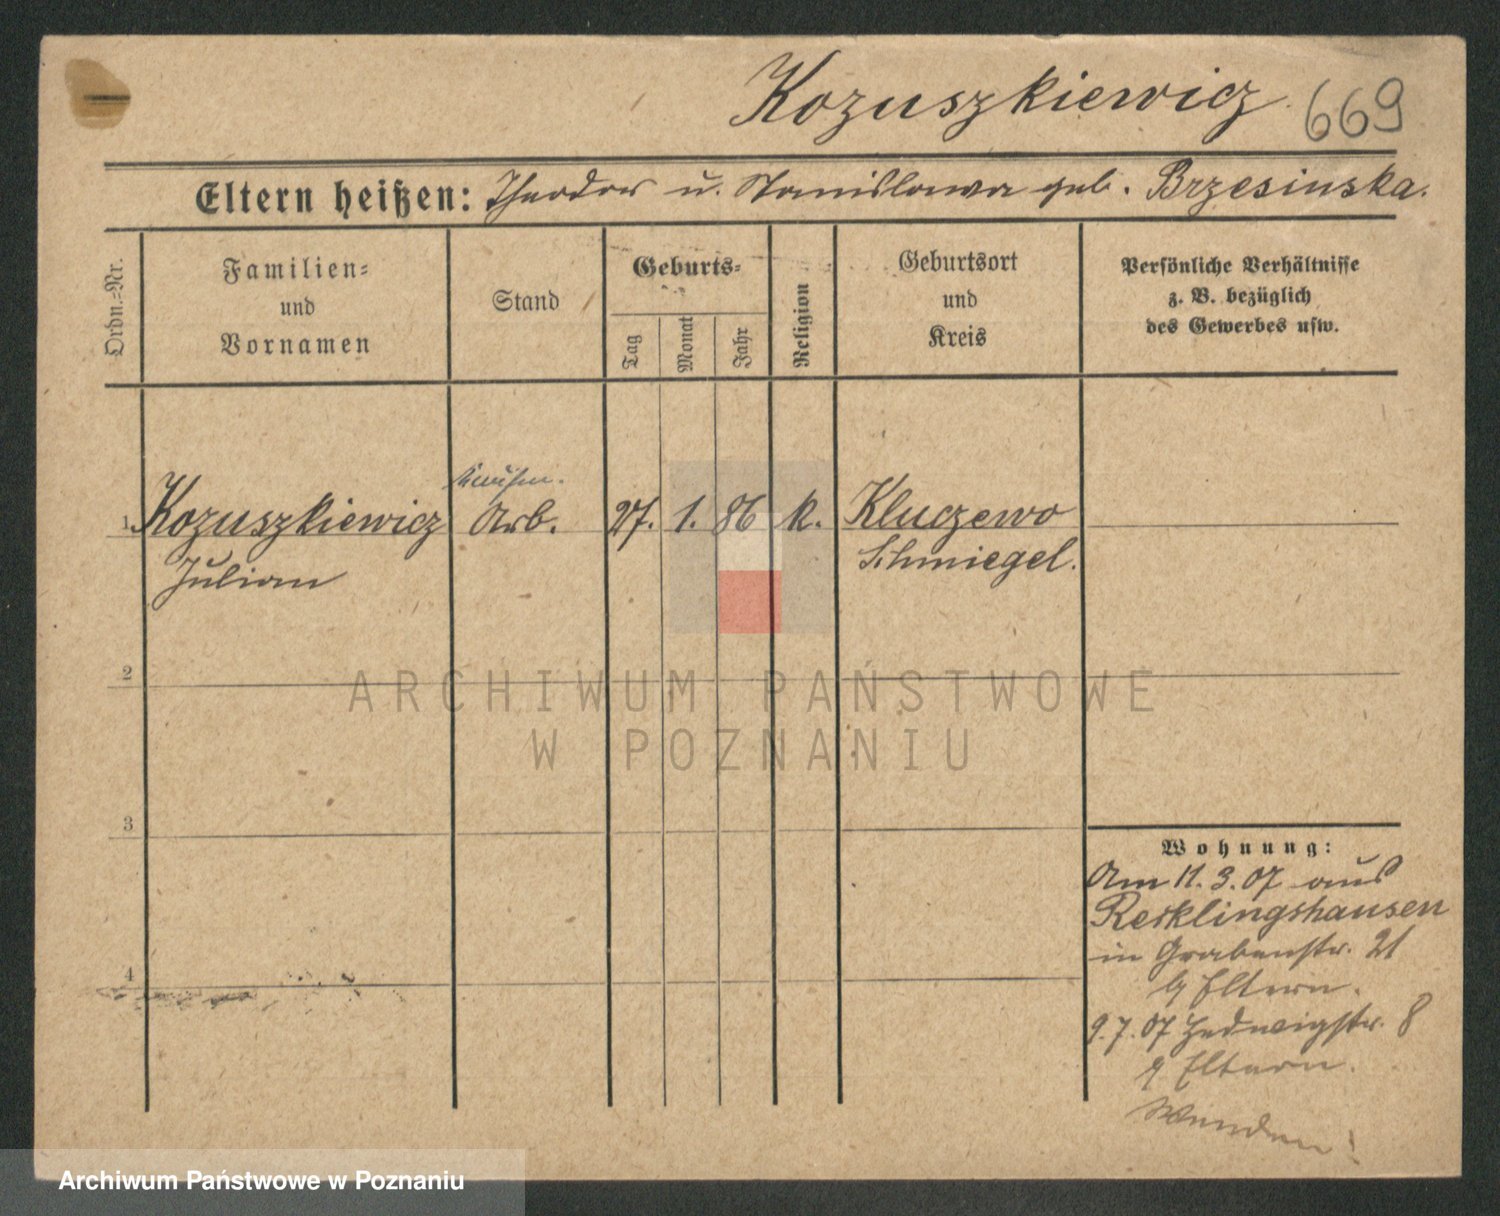 Kozuszkiewicz 669
Eltern heißen: Theodor u. Stanislawa geb. Brzesinska.
Ordn.-Nr.
Familien- und Vornamen
Stand
Geburts-
Tag
Monat
Jahr
Religion
Geburtsort und Kreis
Persönliche Verhältnisse
z. B. bezüglich
des Gewerbes usw.
1 Kozuszkiewicz Arb. 27. 1. 86 k. Kluczewo
Julian Schmiegel.
2
ARCHIWUM PAŃSTWOWE
W POZNANIU
3
Wohnung:
Am 11.3.07 aus
Recklingshausen
in Grabenstr. 21
Eltern.
9.7.07 Hedwigstr. 8
Eltern.
Wenden!
4
Archiwum Państwowe w Poznaniu